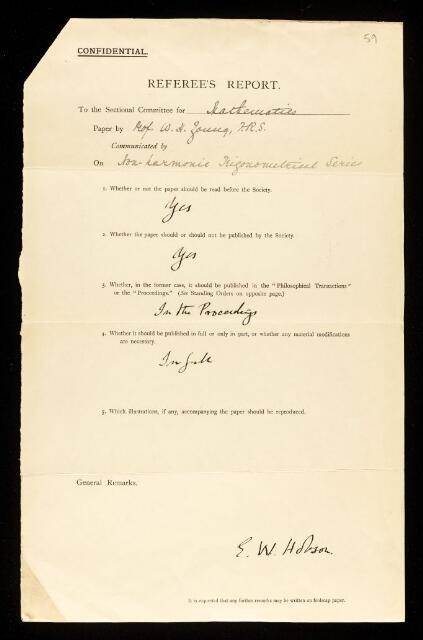 59
CONFIDENTIAL.
REFEREE'S REPORT.
To the Sectional Committee for Mathematics
Paper by Prof. W. H. Young, F.R.S.
Communicated by
On Non-harmonic Trigonometrical Series
1. Whether or not the paper should be read before the Society.
Yes
2. Whether the paper should or should not be published by the Society.
Yes
3. Whether, in the former case, it should be published in the "Philosophical Transactions"
or the "Proceedings." (See Standing Orders on opposite page.)
In the Proceedings
4. Whether it should be published in full or only in part, or whether any material modifications
are necessary.
In full
5. Which illustrations, if any, accompanying the paper should be reproduced.
General Remarks.
E. W. Hobson.
It is requested that any further remarks may be written on foolscap paper.